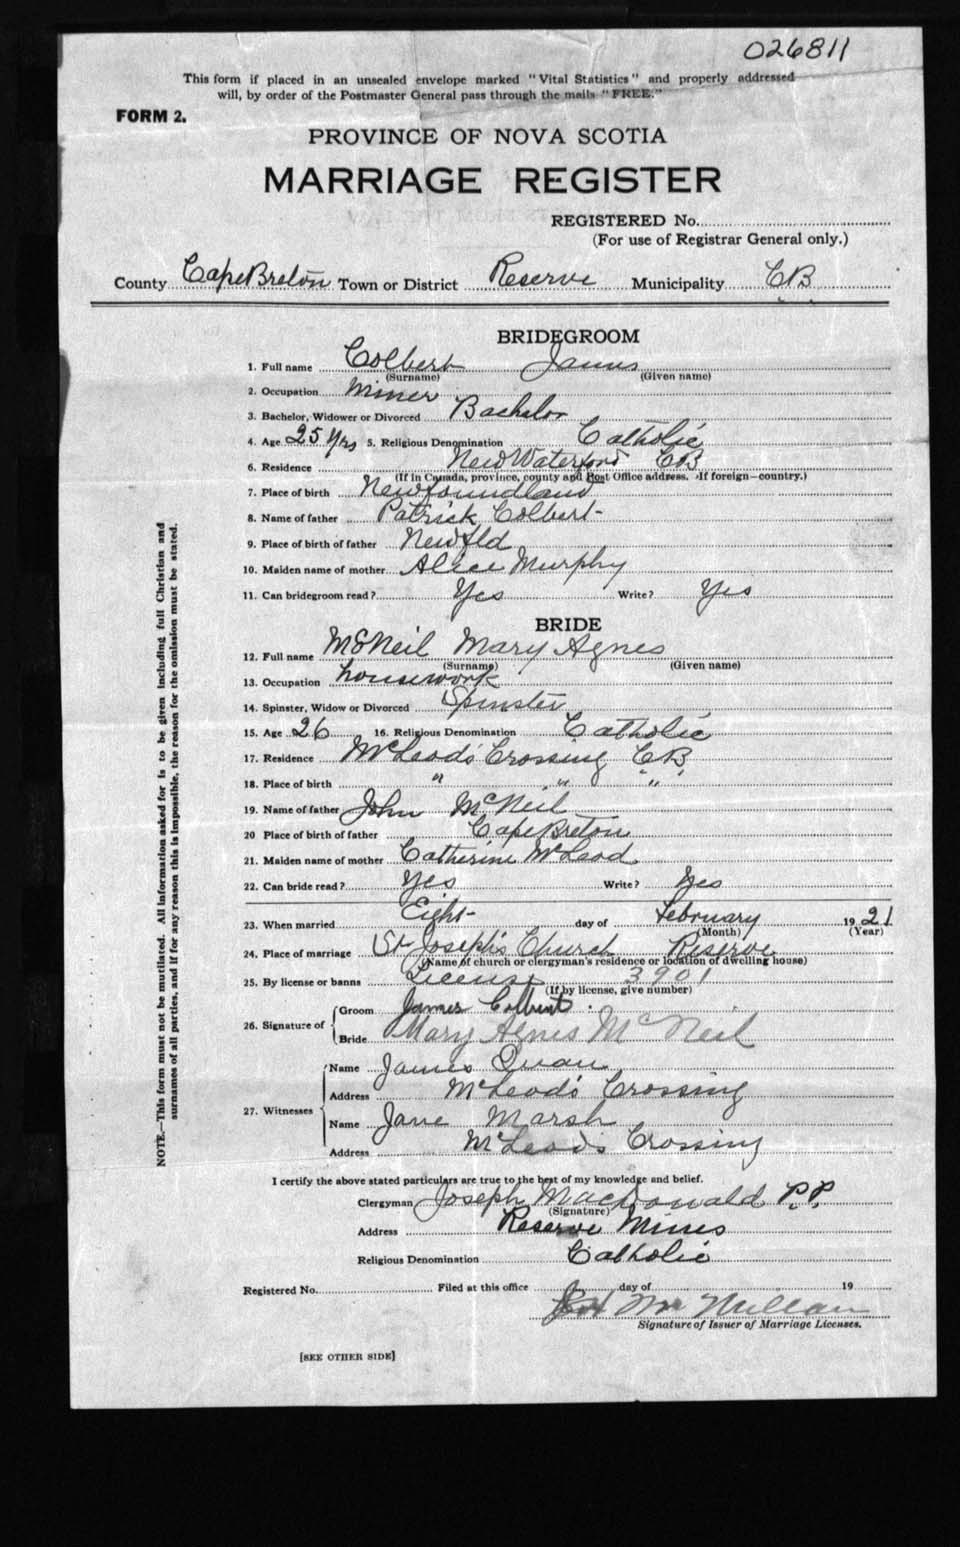 026811
This form if placed in an unsealed envelope marked "Vital Statistics" and properly addressed
will, by order of the Postmaster General pass through the mails "FREE."
FORM 2.
PROVINCE OF NOVA SCOTIA
MARRIAGE REGISTER
REGISTERED No.
(For use of Registrar General only.)
County Cape Breton Town or District Reserve Municipality CB
BRIDEGROOM
1. Full name Colbert James
(Surname) (Given name)
2. Occupation Miner
3. Bachelor, Widower or Divorced Bachelor
4. Age 25 yrs 5. Religious Denomination Catholic
6. Residence New Waterford CB
(If in Canada, province, county and Post Office address. If foreign—country.)
7. Place of birth Newfoundland
8. Name of father Patrick Colbert
9. Place of birth of father Newfld
10. Maiden name of mother Alice Murphy
11. Can bridegroom read? Yes Write? Yes
BRIDE
12. Full name McNeil Mary Agnes
(Surname) (Given name)
13. Occupation housework
14. Spinster, Widow or Divorced Spinster
15. Age 26 16. Religious Denomination Catholic
17. Residence McLeod's Crossing CB
18. Place of birth " " "
19. Name of father John McNeil
20 Place of birth of father Cape Breton
21. Maiden name of mother Catherine McLeod
22. Can bride read? Yes Write? Yes
23. When married Eight day of February 1921
(Month) (Year)
24. Place of marriage St Joseph's Church Reserve
(Name of church or clergyman's residence or location of dwelling house)
25. By license or banns License 3901
(If by license, give number)
26. Signature of Groom James Colbert
Bride Mary Agnes McNeil
27. Witnesses Name James
Address McLeod's Crossing
Name Jane Marsh
Address McLeods Crossing
I certify the above stated particulars are true to the best of my knowledge and belief.
Clergyman Joseph MacDonald P.P.
(Signature)
Address Reserve Mines
Religious Denomination Catholic
Registered No. Filed at this office day of 19
McMillan
Signature of Issuer of Marriage Licenses.
[SEE OTHER SIDE]
NOTE.—This form must not be mutilated. All information asked for is to be given including full Christian and
surnames of all parties, and if for any reason this is impossible, the reason for the omission must be stated.